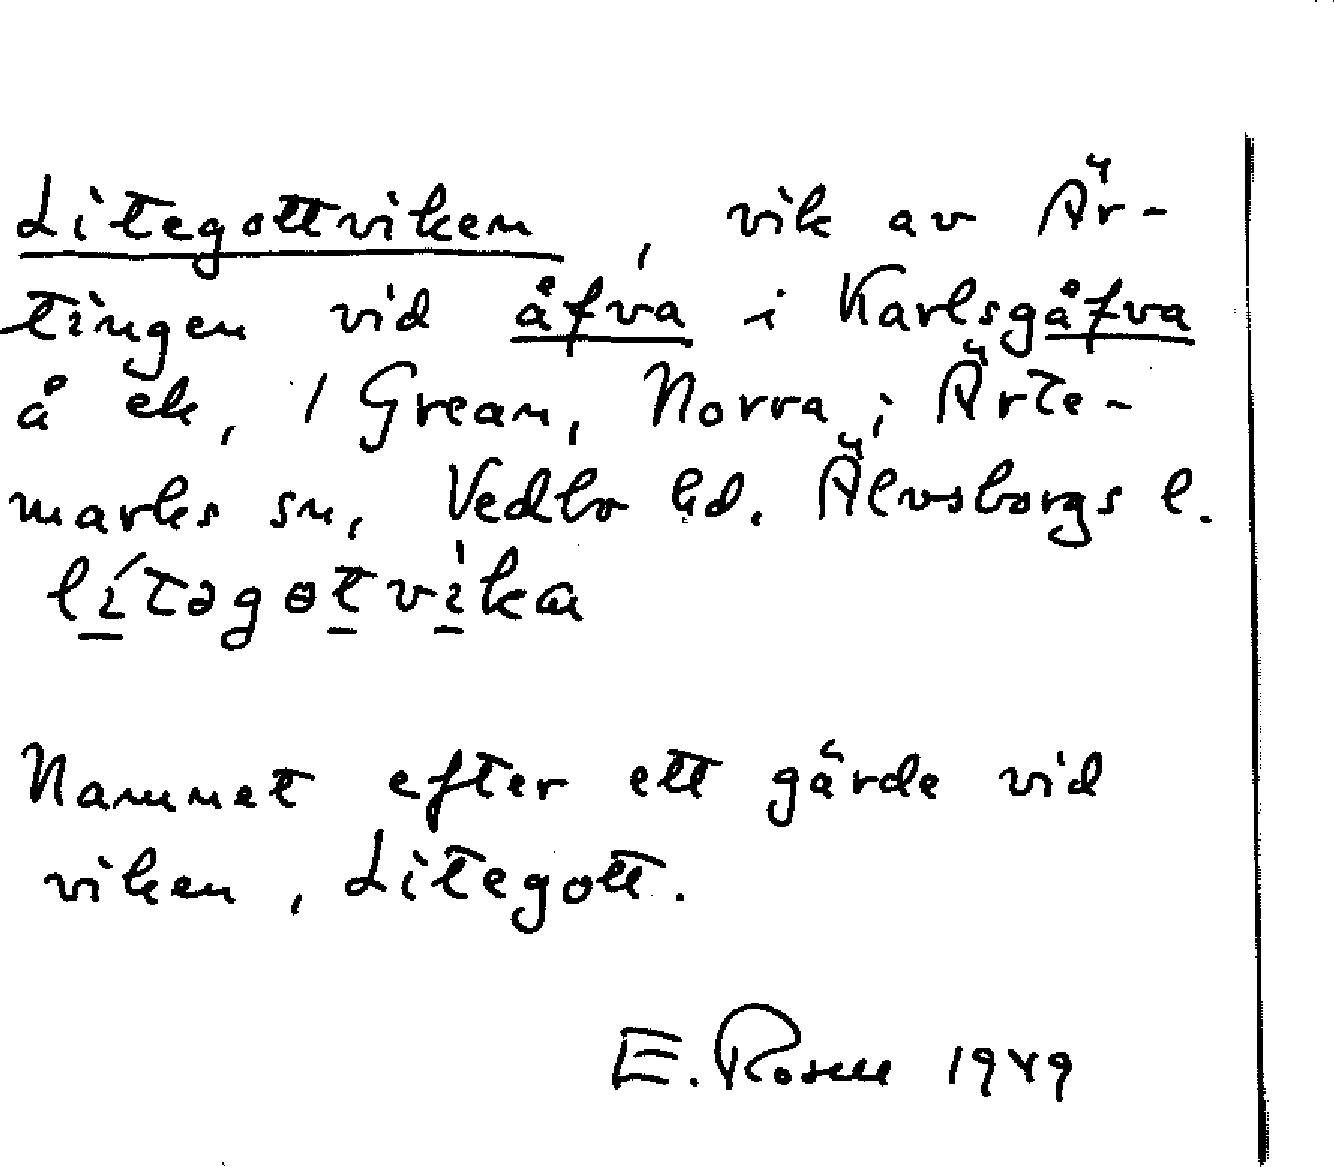 Litegottviken, vik av Är-
tingen vid åfva i Karlsgåfva
å ek, / Grean, Norra, i Ärte-
marks sn, Vedbo hd. Älvsborgs l.
lítəgotvìka
Namnet efter ett gärde vid
viken, Litegott.
E. Rosell 1949